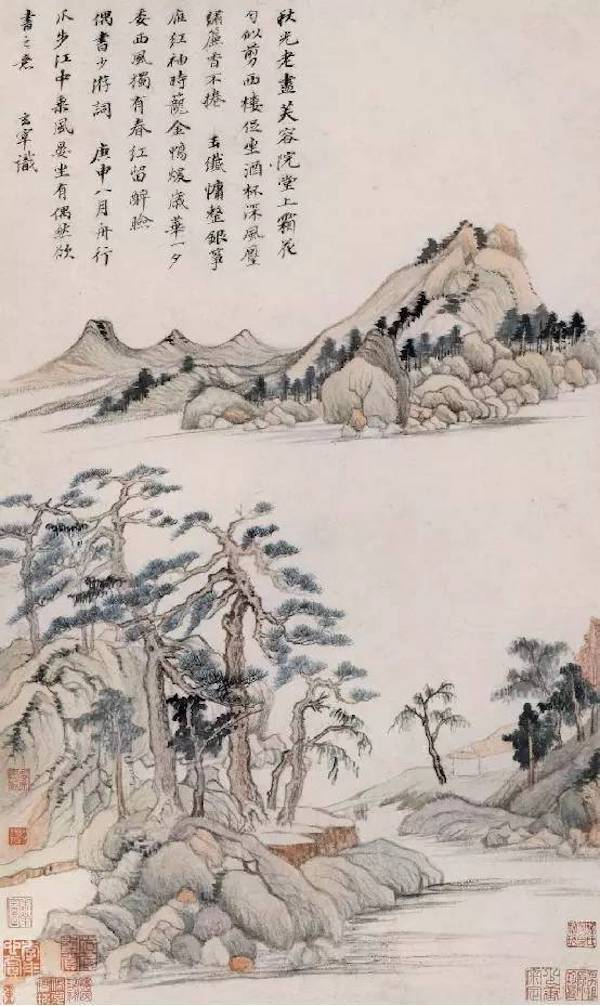 秋光老盡芙蓉院堂上霜花
勻似剪西樓促坐酒杯深風壓
繡簾香不捲 玉纖慵整銀箏
雁紅袖時籠金鴨煖歲華一夕
委西風獨有春紅留醉臉
偶書少游詞 庚申八月舟行
瓜步江中乘風晏坐有偶然欲
書之意 玄宰識